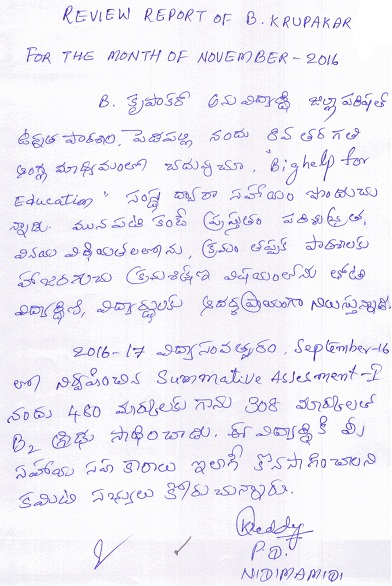 REVIEW REPORT OF B. KRUPAKAR
FOR THE MONTH OF NOVEMBER - 2016
B. కృపాకర్ అను విద్యార్థి జిల్లా పరిషత్
ఉన్నత పాఠశాల, నందు 8వ తరగతి
ఆంగ్ల మాధ్యమంలో చదువుచూ, "Big help for
Education" సంస్థ ద్వారా సహాయం పొందుచు
న్నాడు. మునుపటి కంటే ప్రస్తుతం పరిశుభ్రత,
వినయ విధేయతలలోను, క్రమం తప్పక పాఠశాలకు
హాజరగుచు క్రమశిక్షణ విషయంలోను తోటి
విద్యార్థినీ, విద్యార్థులకు ఆదర్శప్రాయంగా నిలుస్తున్నాడు.
2016-17 విద్యాసంవత్సరం, September-16
లో నిర్వహించిన Summative Assesment-I
నందు 480 మార్కులకు గాను 308 మార్కులతో
B2 గ్రేడు సాధించాడు. ఈ విద్యార్థికి మీ
సహాయ సహకారాలు ఇలాగే కొనసాగించాలని
కమిటి సభ్యులు కోరుచున్నారు.
P.D.
NIDIMAMIDI